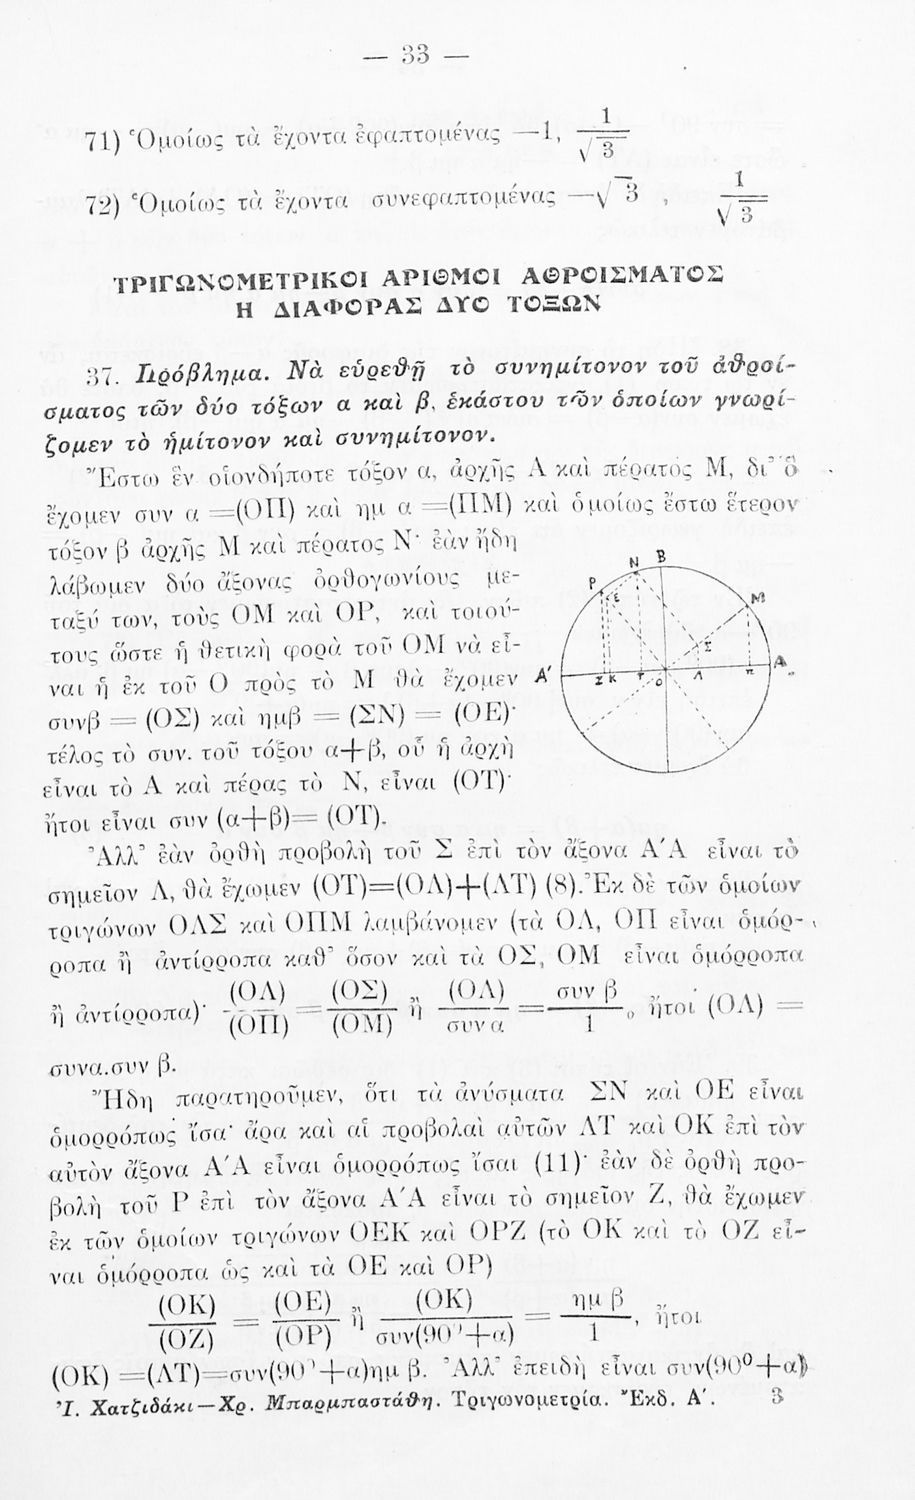 — 33 —
71) Ὁμοίως τὰ ἔχοντα ἐφαπτομένας —1, 1/√3
72) Ὁμοίως τὰ ἔχοντα συνεφαπτομένας —√3 , 1/√3
ΤΡΙΓΩΝΟΜΕΤΡΙΚΟΙ ΑΡΙΘΜΟΙ ΑΘΡΟΙΣΜΑΤΟΣ
Η ΔΙΑΦΟΡΑΣ ΔΥΟ ΤΟΞΩΝ
37. Πρόβλημα. Νὰ εὑρεθῇ τὸ συνημίτονον τοῦ ἀθροί-
σματος τῶν δύο τόξων α καὶ β, ἑκάστου τῶν ὁποίων γνωρί-
ζομεν τὸ ἡμίτονον καὶ συνημίτονον.
Ἔστω ἓν οἱονδήποτε τόξον α, ἀρχῆς Α καὶ πέρατος Μ, δι' ὃ
ἔχομεν συν α =(ΟΠ) καὶ ημ α =(ΠΜ) καὶ ὁμοίως ἔστω ἕτερον
τόξον β ἀρχῆς Μ καὶ πέρατος Ν· ἐὰν ἤδη
λάβωμεν δύο ἄξονας ὀρθογωνίους με-
ταξύ των, τοὺς ΟΜ καὶ ΟΡ, καὶ τοιού-
τους ὥστε ἡ θετικὴ φορὰ τοῦ ΟΜ νὰ εἶ-
ναι ἡ ἐκ τοῦ Ο πρὸς τὸ Μ θὰ ἔχομεν
συνβ = (ΟΣ) καὶ ημβ = (ΣΝ) = (ΟΕ)·
τέλος τὸ συν. τοῦ τόξου α+β, οὗ ἡ ἀρχὴ
εἶναι τὸ Α καὶ πέρας τὸ Ν, εἶναι (ΟΤ)·
ἤτοι εἶναι συν (α+β)= (ΟΤ).
Ρ Ε Ν Β Μ Σ Α' Ζ Κ Τ Ο Λ Π Α
Ἀλλ' ἐὰν ὀρθὴ προβολὴ τοῦ Σ ἐπὶ τὸν ἄξονα Α'Α εἶναι τὸ
σημεῖον Λ, θὰ ἔχωμεν (ΟΤ)=(ΟΛ)+(ΛΤ) (8). Ἐκ δὲ τῶν ὁμοίων
τριγώνων ΟΛΣ καὶ ΟΠΜ λαμβάνομεν (τὰ ΟΛ, ΟΠ εἶναι ὁμόρ-
ροπα ἢ ἀντίρροπα καθ' ὅσον καὶ τὰ ΟΣ, ΟΜ εἶναι ὁμόρροπα
ἢ ἀντίρροπα)· (ΟΛ)/(ΟΠ) = (ΟΣ)/(ΟΜ) ἢ (ΟΛ)/συνα = συν β/1, ἤτοι (ΟΛ) =
συνα.συν β.
Ἤδη παρατηροῦμεν, ὅτι τὰ ἀνύσματα ΣΝ καὶ ΟΕ εἶναι
ὁμορρόπως ἴσα· ἄρα καὶ αἱ προβολαὶ αὐτῶν ΛΤ καὶ ΟΚ ἐπὶ τὸν
αὐτὸν ἄξονα Α'Α εἶναι ὁμορρόπως ἴσαι (11)· ἐὰν δὲ ὀρθὴ προ-
βολὴ τοῦ Ρ ἐπὶ τὸν ἄξονα Α'Α εἶναι τὸ σημεῖον Ζ, θὰ ἔχωμεν
ἐκ τῶν ὁμοίων τριγώνων ΟΕΚ καὶ ΟΡΖ (τὸ ΟΚ καὶ τὸ ΟΖ εἶ-
ναι ὁμόρροπα ὡς καὶ τὰ ΟΕ καὶ ΟΡ)
(ΟΚ)/(ΟΖ) = (ΟΕ)/(ΟΡ) ἢ (ΟΚ)/συν(90°+α) = ημ β/1, ἤτοι
(ΟΚ) =(ΛΤ)=συν(90°+α)ημ β. Ἀλλ' ἐπειδὴ εἶναι συν(90°+α)
Ἰ. Χατζιδάκι—Χρ. Μπαρμπαστάθη. Τριγωνομετρία. Ἔκδ. Α'. 3